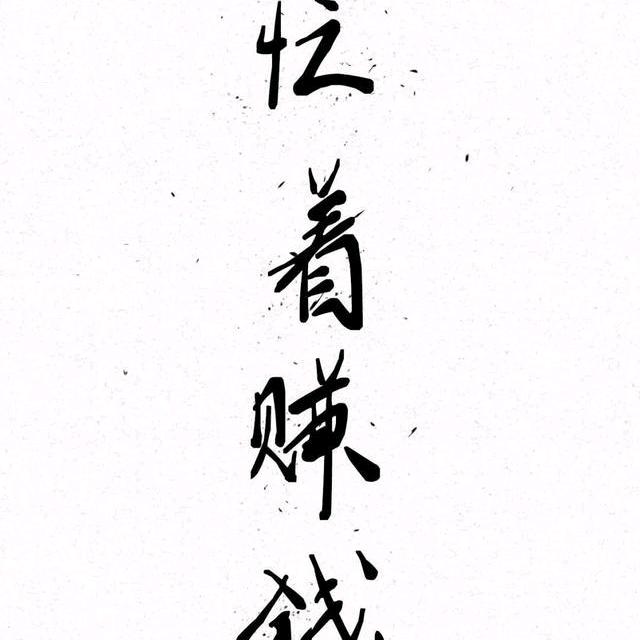 忙着赚钱